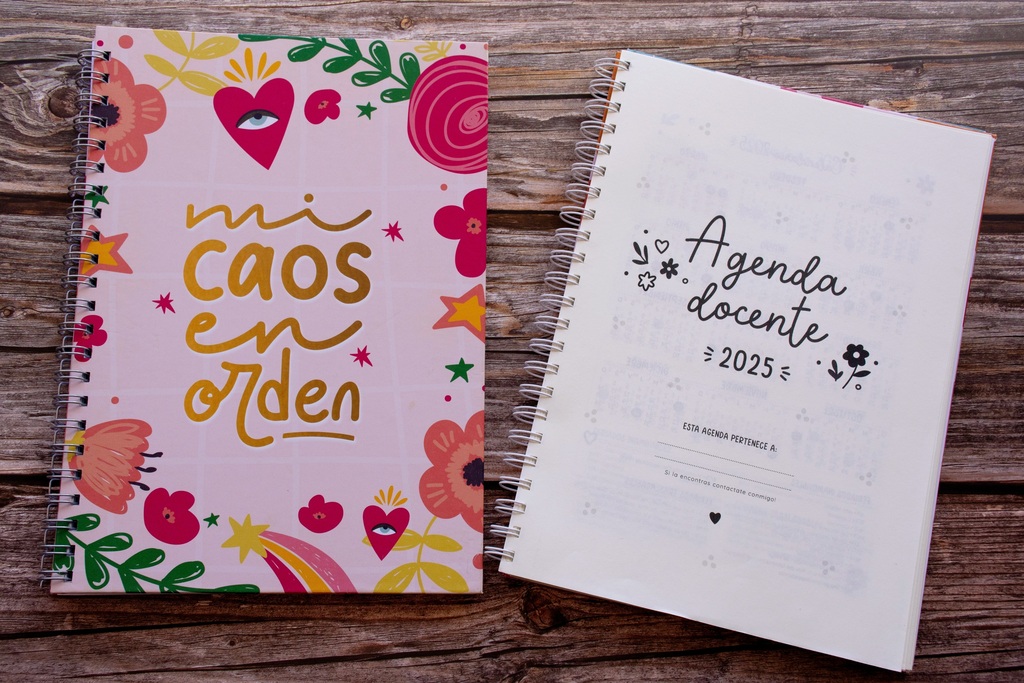 mi
caos
en
orden
Agenda
docente
2025
ESTA AGENDA PERTENECE A:
Si la encontras contactate conmigo!